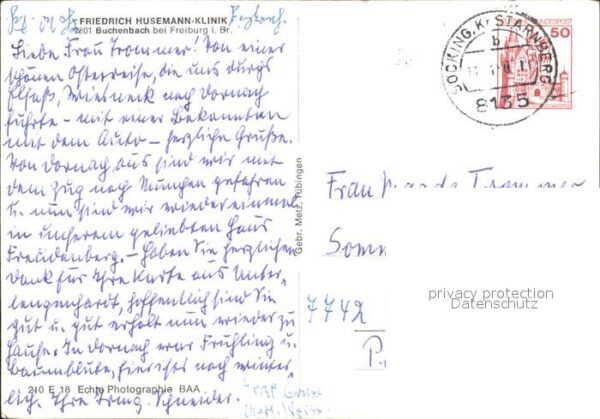 FRIEDRICH HUSEMANN-KLINIK
7801 Buchenbach bei Freiburg i. Br.
Liebe Frau Trommer! Von einer
schönen Osterreise, die uns durchs
Elsaß, Wiesneck nach Dornach
führte – mit einer Bekannten
mit dem Auto – herzliche Grüße.
Von Dornach aus sind wir mit
dem Zug nach München gefahren
u. nun sind wir wieder einmal
in unserem geliebten Haus
Freudenberg. – Haben Sie herzlichen
Dank für Ihre Karte aus Unter-
lengenhardt, hoffentlich sind Sie
gut u. gut erholt nun wieder zu
Hause. In Dornach war Frühling u.
Baumblüte, hier ists noch winter-
lich. Ihre Irmg. Schneider.
210 E 18 Echte Photographie BAA
Gebr. Metz, Tübingen
SÖCKING, Kr STARNBERG
b
8135
DEUTSCHE BUNDESPOST
50
Frau Trommer
Somm
7742
privacy protection
Datenschutz